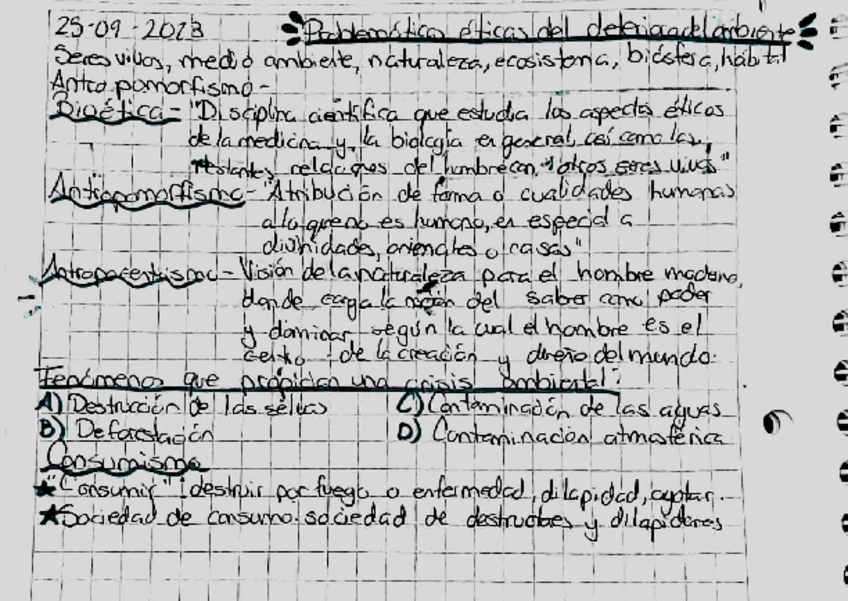 25-09-2023 Problemática éticas del deterioro del ambiente
Seres vivos, medio ambiente, naturaleza, ecosistema, biósfera, hábitat
Antropomorfismo-
Bioética- "Disciplina científica que estudia los aspectos éticos
de la medicina y la biología en general, así como las
restantes relaciones del hombre con otros seres vivos"
Antropomorfismo- "Atribución de forma o cualidades humanas
a lo que no es humano, en especial a
divinidades, animales o cosas"
Antropocentrismo- Visión de la naturaleza para el hombre moderno,
donde carga la noción del saber como poder
y dominar según la cual el hombre es el
centro de la creación y dueño del mundo.
Fenómenos que propician una crisis ambiental:
A) Destrucción de las selvas C) Contaminación de las aguas
B) Deforestación D) Contaminación atmosférica
Consumismo
★"Consumir" : destruir por fuego o enfermedad, dilapidad, agotar.
★Sociedad de consumo: sociedad de destructores y dilapidores